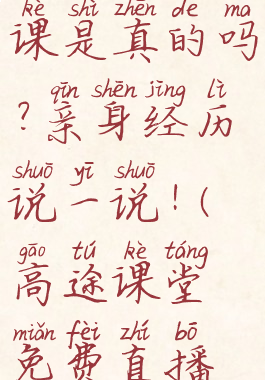 kè shì zhēn de ma
课是真的吗
qīn shēn jīng lì
?亲身经历
shuō yī shuō
说一说!(
gāo tú kè táng
高途课堂
miǎn fèi zhí bō
免费直播